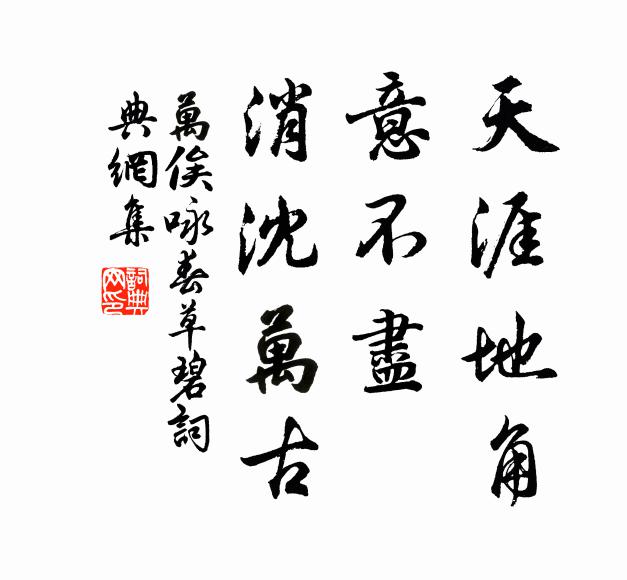 天涯地角
意不盡
消沈萬古
萬俟咏春草碧詞
典網集
詞典網印